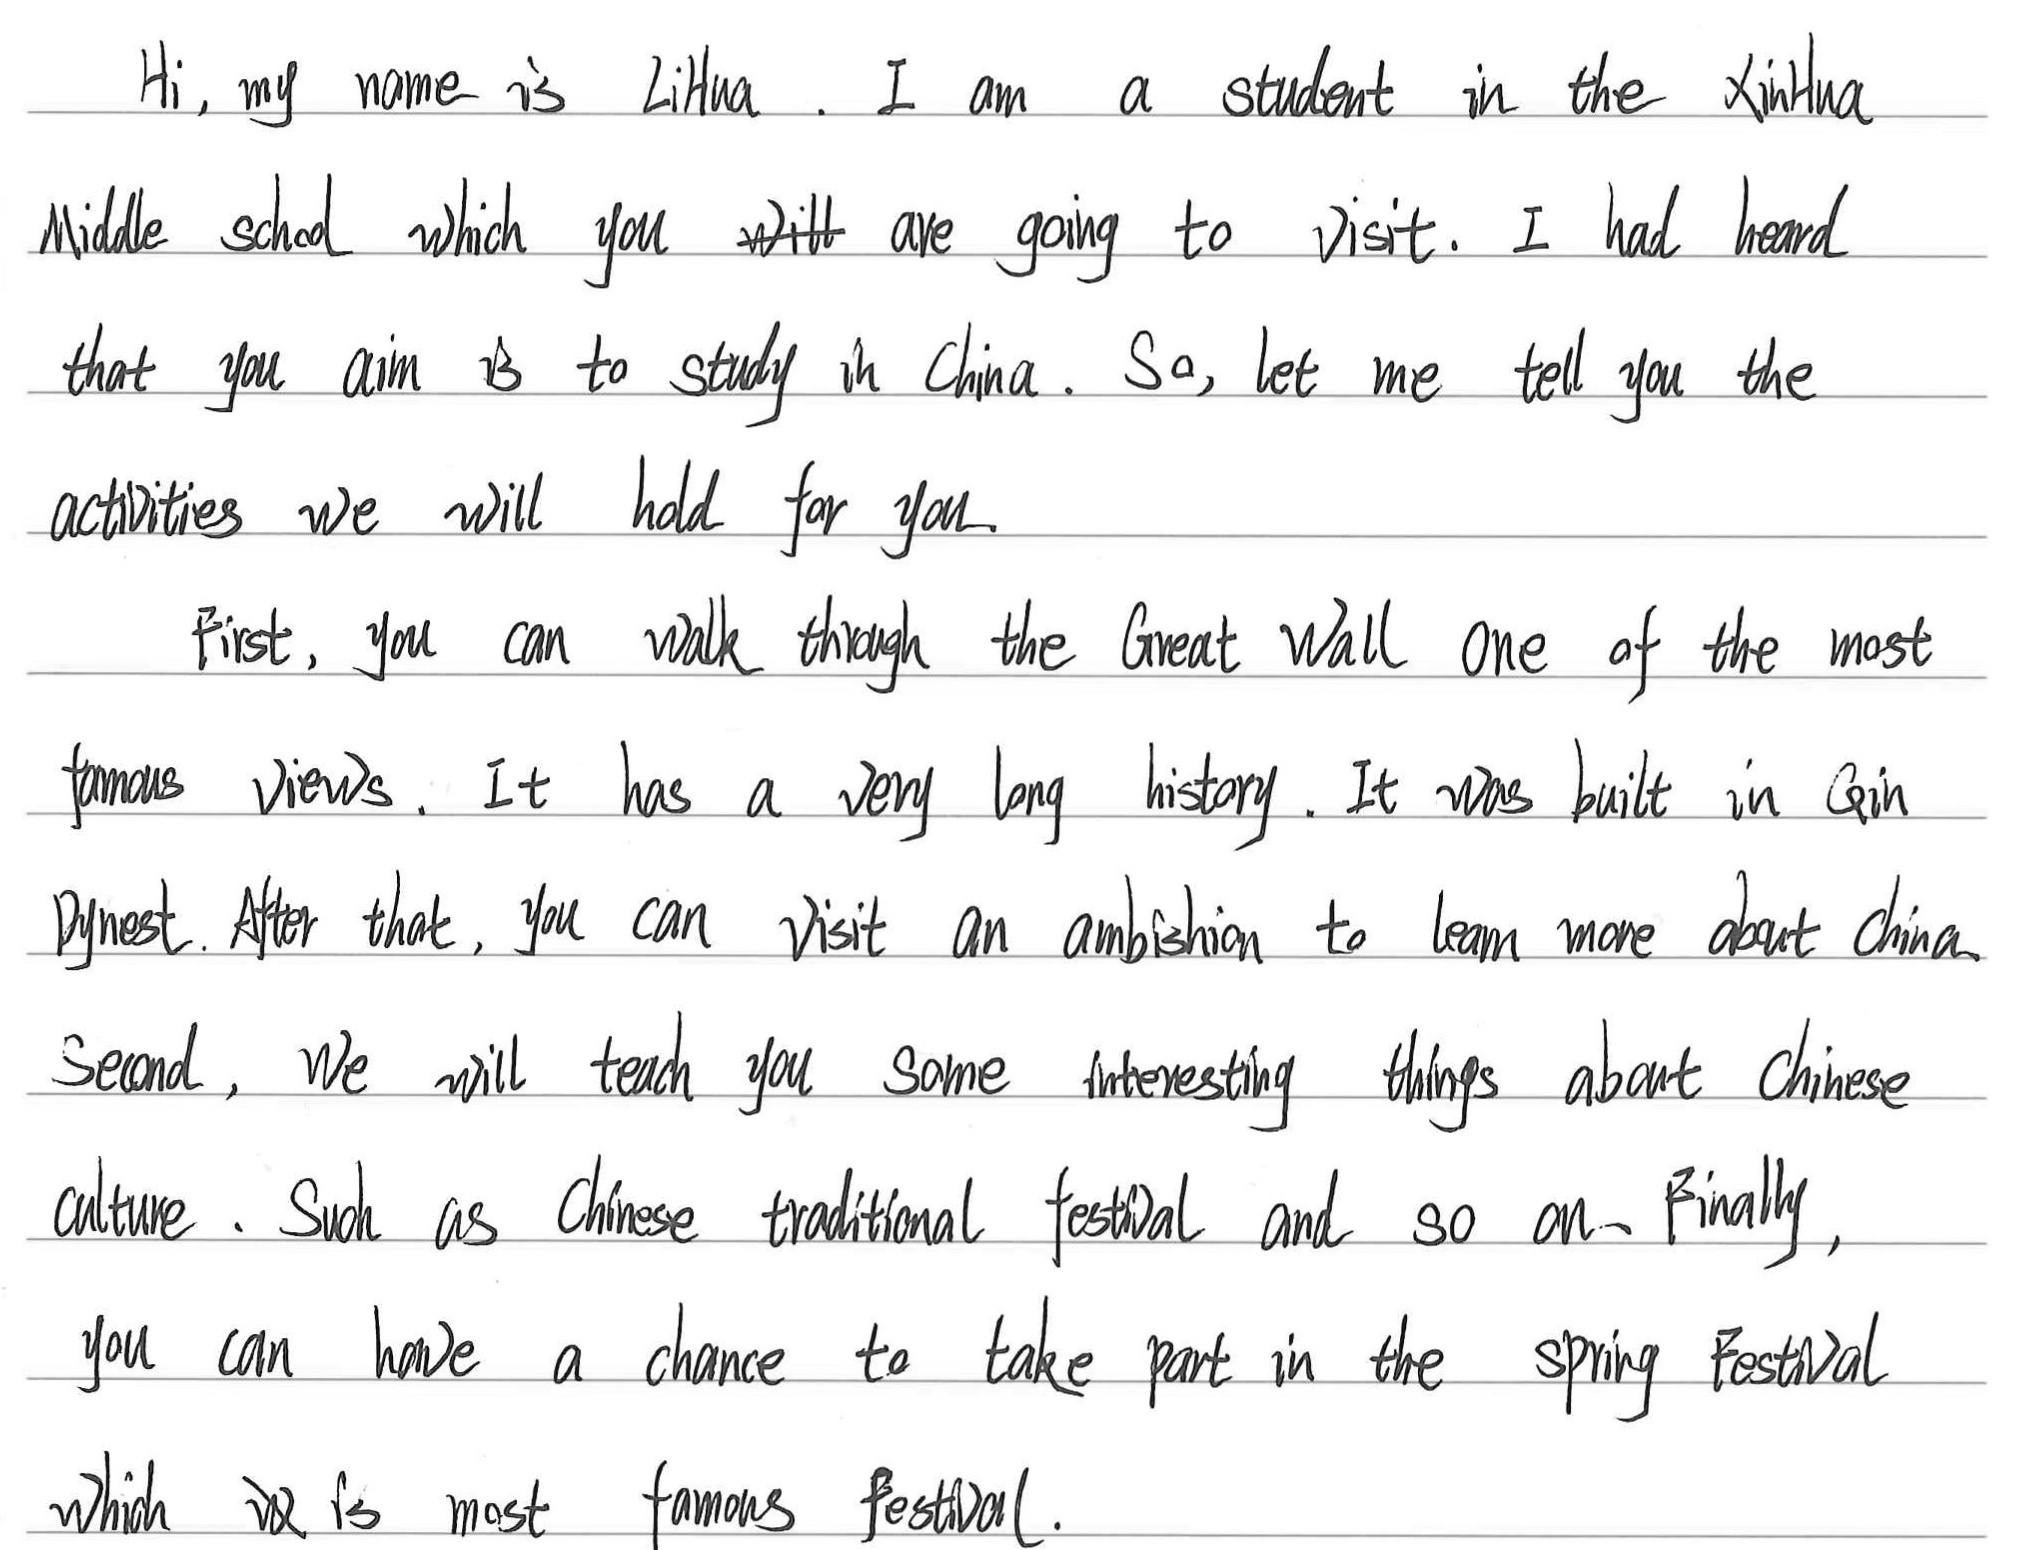 Hi, my name is LiHua. I am a student in the XinHua
Middle school which you are going to visit. I had heard
that you aim is to study in China. So, let me tell you the
activities we will hold for you.
First, you can walk through the Great Wall one of the most
famous views. It has a very long history. It was built in Qin
Dynest. After that, you can visit an ambishion to learn more about China.
Second, we will teach you some interesting things about Chinese
culture. Such as Chinese traditional festival and so on. Finally,
you can have a chance to take part in the spring Festival
which is most famous festival.